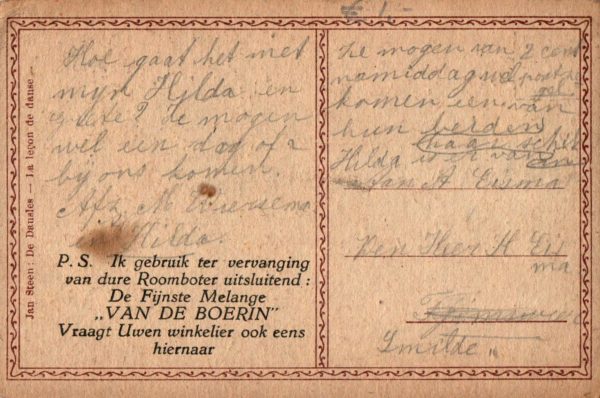 Hoe gaat het met
mijn Hilda en
Ze mogen
wel een dag of 2
bij ons komen.
Afz. M Wiersema
en Hilda.
P. S. Ik gebruik ter vervanging
van dure Roomboter uitsluitend:
De Fijnste Melange
„VAN DE BOERIN"
Vraagt Uwen winkelier ook eens
hiernaar
Jan Steen: De Dansles — La leçon de danse
f 1.-
Ze mogen van 2 cent
namiddag wel
komen een van
hun
Hilda is er van
van A Eisma
Den Heer H Eis
ma
Smilde